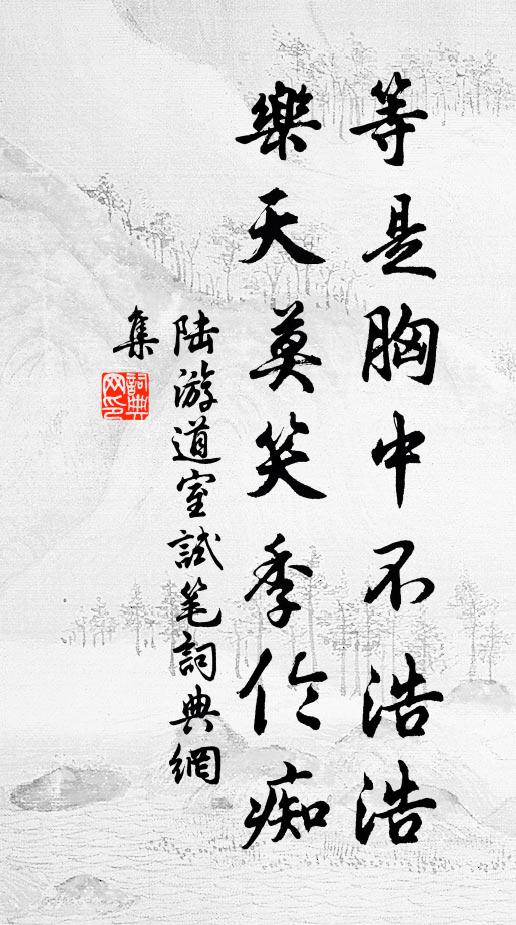 等是胸中不浩浩
樂天莫笑季伦痴
陆游道室試笔詞典網
集
詞典
网印